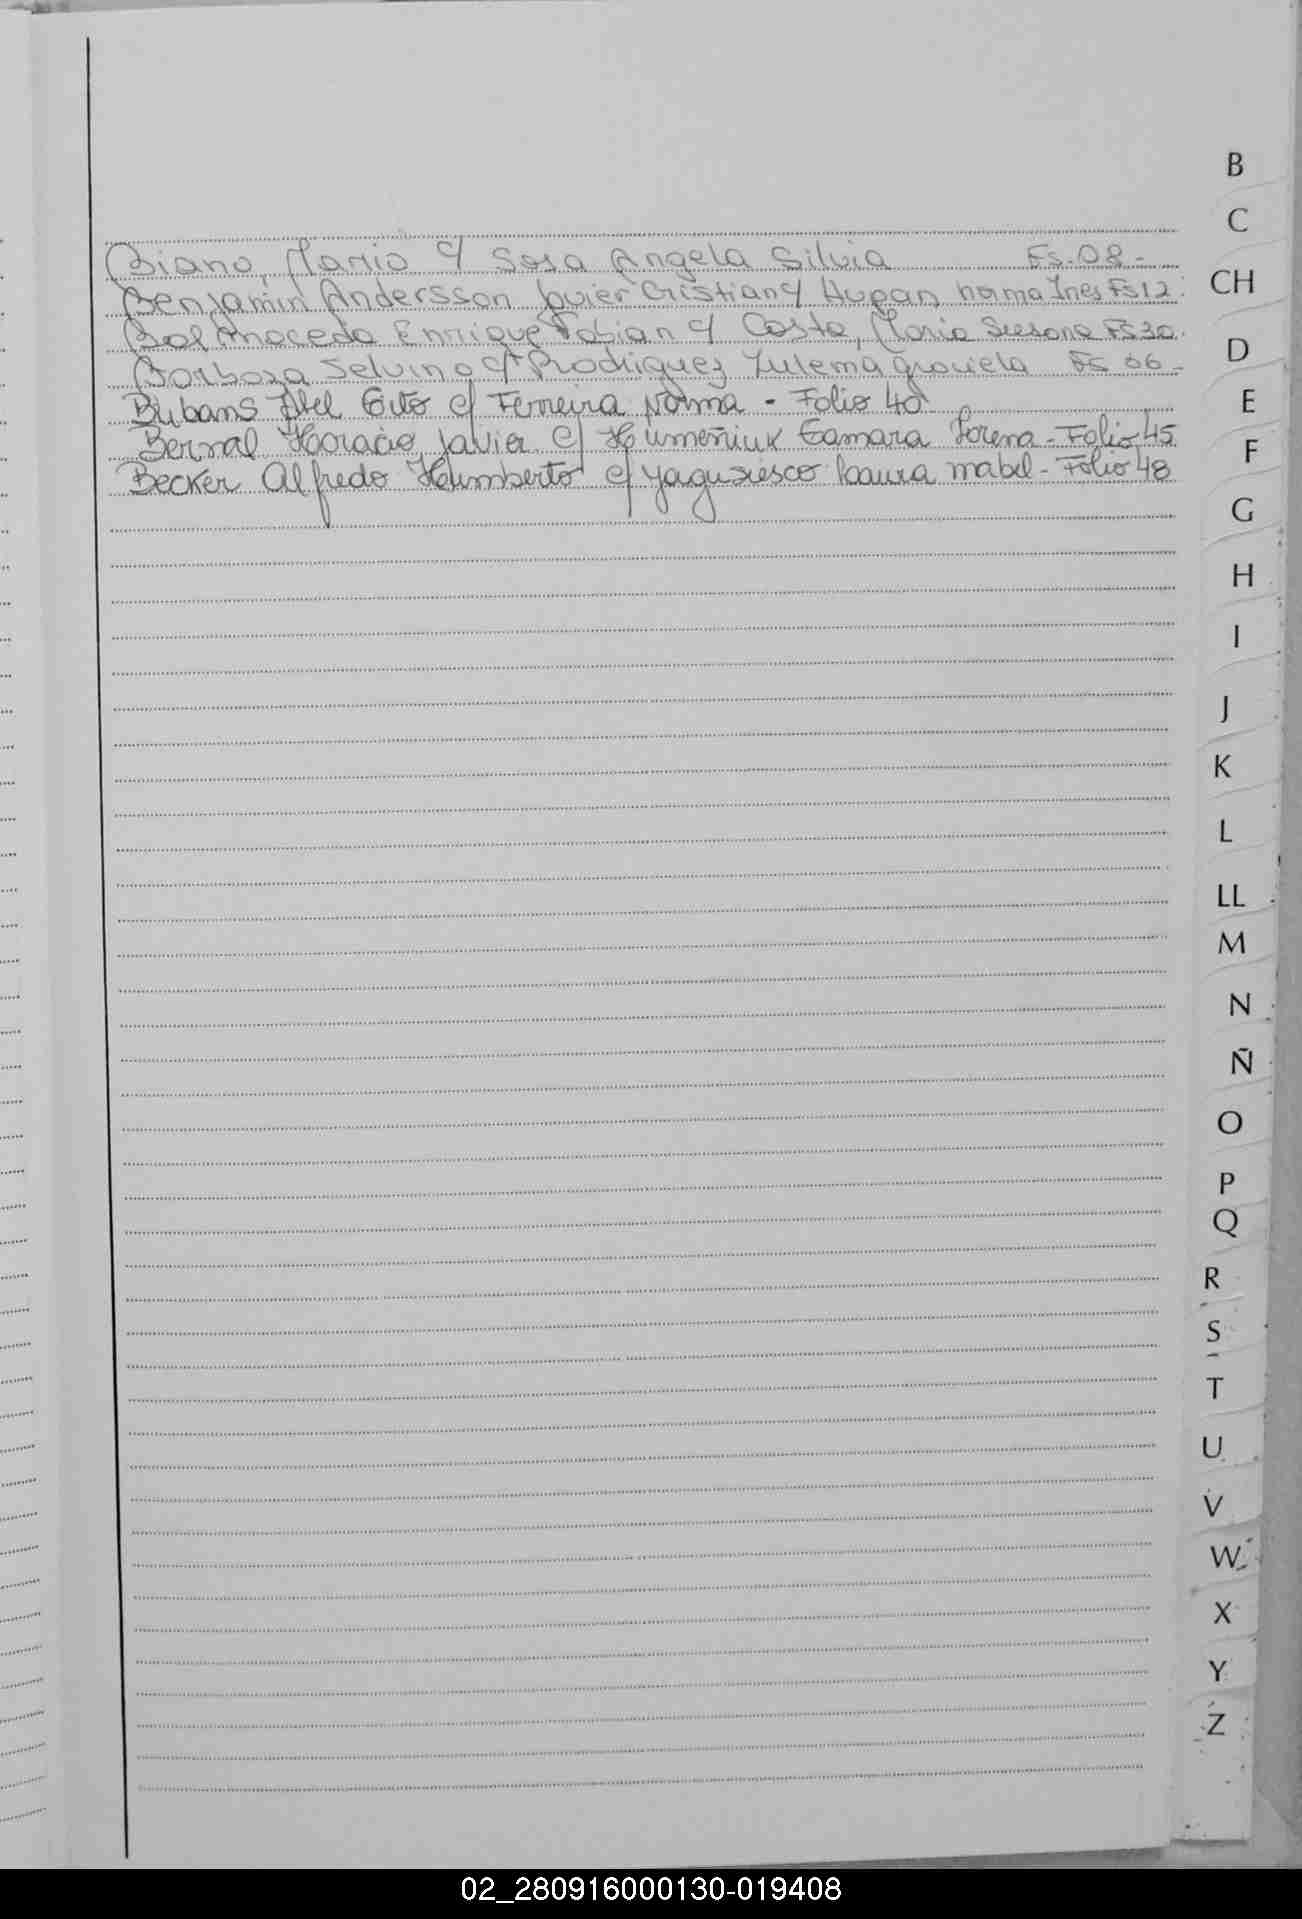 Biano, Mario c/ Sosa Angela Silvia Fs. 08-
Benjamin Andersson Javier Cristian c/ Dugan, Norma Ines Fs 12.
Bal Macedo Enrique Fabian c/ Costa, Maria Susana Fs 30.
Barboza Selvino c/ Rodriguez Zulema Graciela Fs 06-
Bubans Abel Tito c/ Ferreira Norma - Folio 40
Bernal Horacio Javier c/ Humeñiuk Tamara Lorena - Folio 45
Becker Alfredo Humberto c/ Yagusiesco Laura Mabel - Folio 48
B
C
CH
D
E
F
G
H
I
J
K
L
LL
M
N
Ñ
O
P
Q
R
S
T
U
V
W
X
Y
Z
02_280916000130-019408